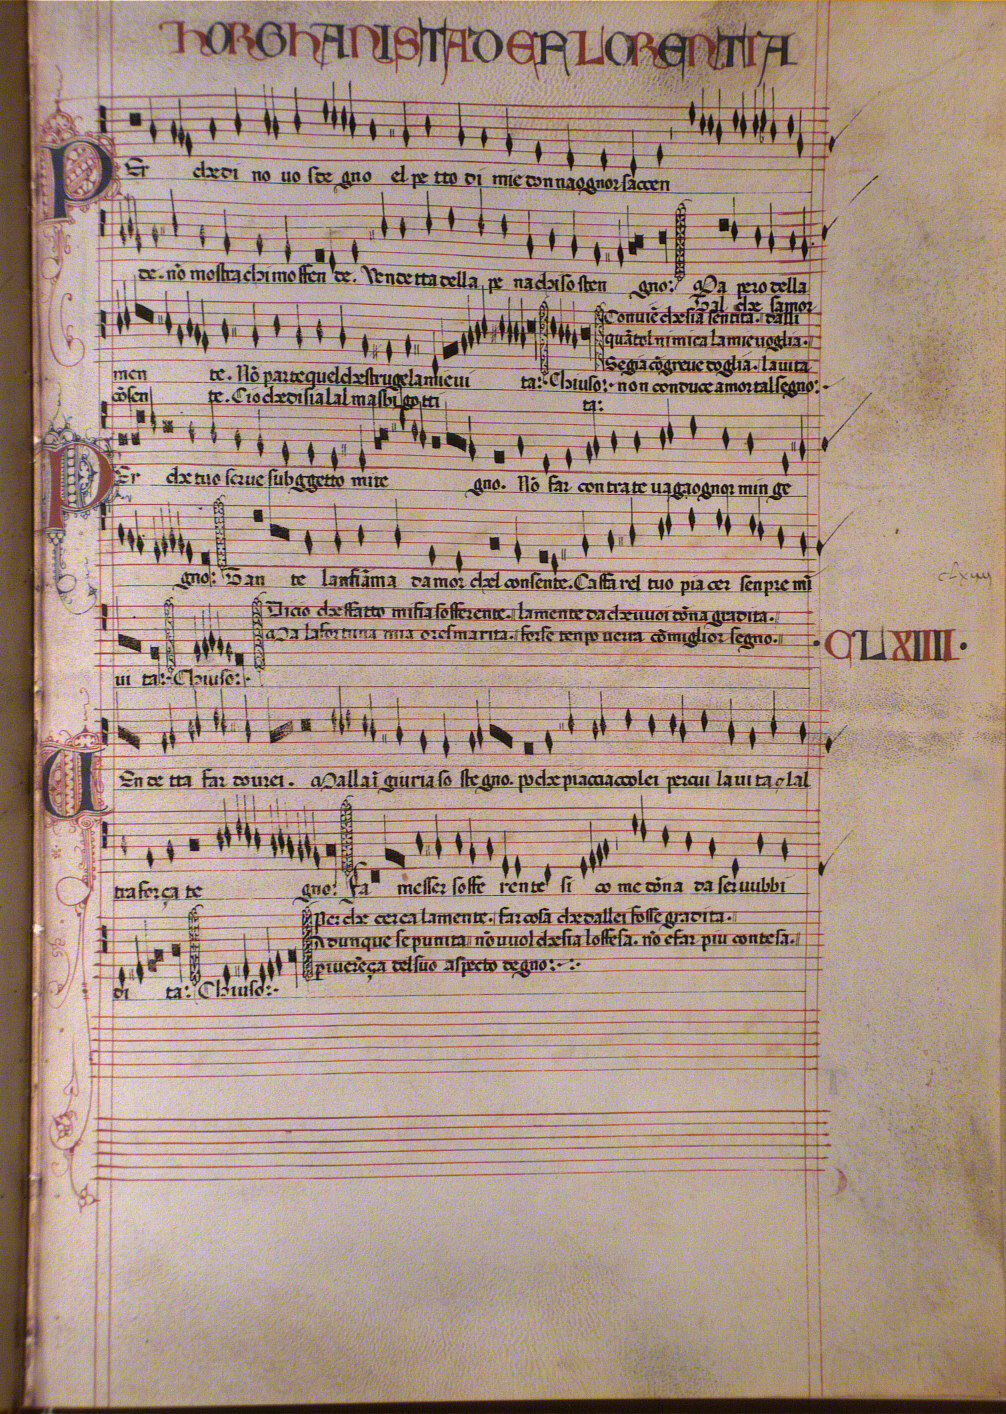 HORGHANISTA DE FLORENTIA
PEr che di no vo sde gno el pe tto di mie donna ognor saccen
de. nō mostra chi mo ffen de. Vendetta della pe na chi so sten gno: Ma pero della
Dal che samor
Convie chesia sentita. dassi
quātel nimica la mie voglia.
Se gia cō greve doglia. la vita
men te. Nō parte quel che strugelamie vi ta: Chiuso: non conduce amor tal segno:
cōsen te. Cio che disia lal ma sbi gotti ta:
PEr che tuo serve subggetto mi te gno. Nō far contra te vaga ognor min ge
gno: Dan te lanfiāma damor chel consente. Cassa rel tuo piacer senpre mi
Dicio cheffatto mi sia sofferente. lamente da che vvoi dōna gradita.
Ma la fortuna mia oresmarita. forse tenpo verra cō miglior segno.
vi ta: Chiuso:
CLXIIII
VEn de tta far dovrei. Malla ī giuria so ste gno. po che piacciaccolei percui la vi ta e lal
tra for ça te gno: Fa messer soffe rente si co me dōna da servubbi
Per che cerca la mente. far cosa che dallei fosse gradita.
Adunque se punita nō vuol che sia loffesa. nō e far piu contesa.
p iverēça del suo aspecto degno:
di ta: Chiuso:
clxiiii